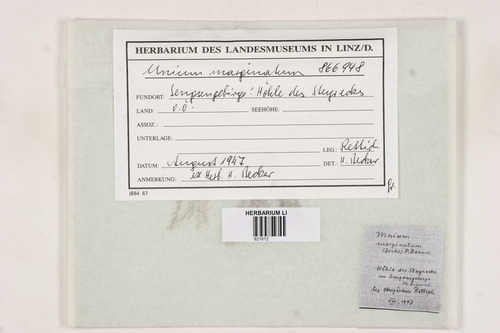 HERBARIUM DES LANDESMUSEUMS IN LINZ/D.
Mnium marginatum 866948
FUNDORT: Sengsengebirge: Höhle des Steyrecks
LAND: O.Ö. SEEHÖHE:
ASSOZ.:
UNTERLAGE:
LEG.: Rettich
DATUM: August 1947 DET.: H. Becker
ANMERKUNG: ex Herb. H. Becker
1884 83
HERBARIUM LI
821612
Mnium
marginatum
(Dicks) P. Beauv.
Höhle des Steyrecks
im Sengsengebirge
leg. Rettich
VIII. 1947